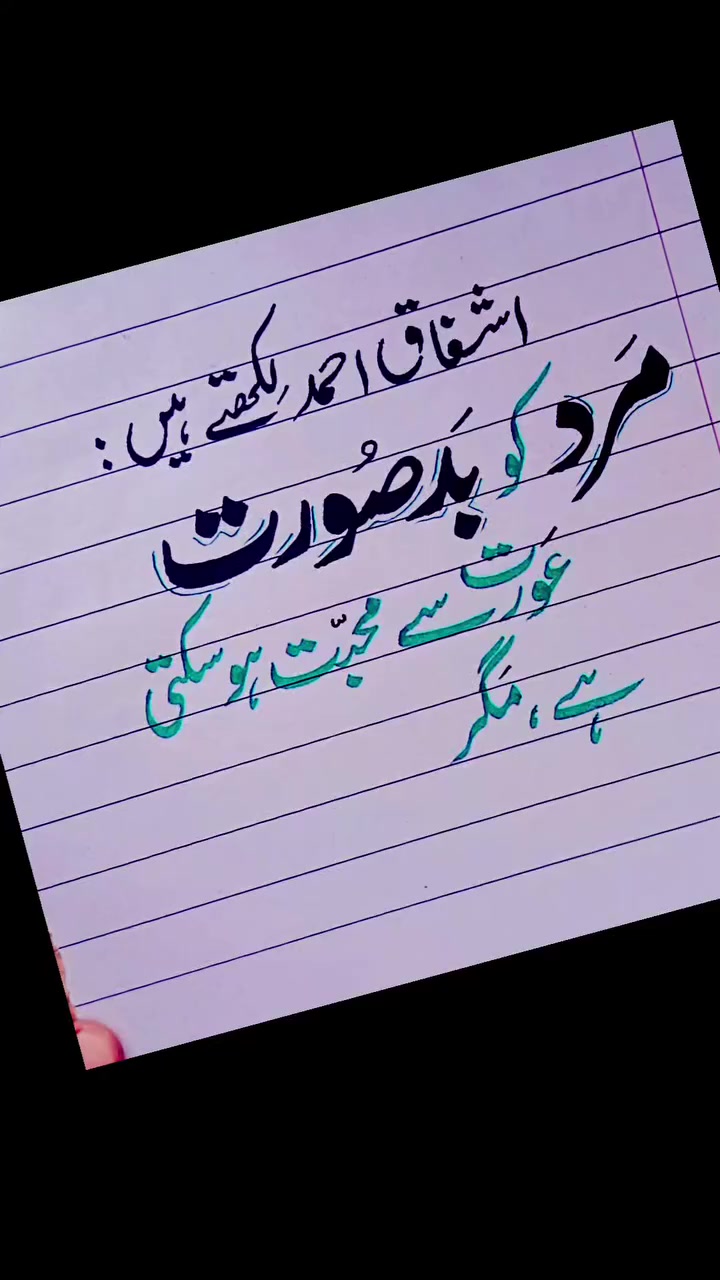 اشفاق احمد لکھتے ہیں :
مَرد کو بَدصُورت
عَورت سے محبّت ہو سکتی
ہے ، مَگر